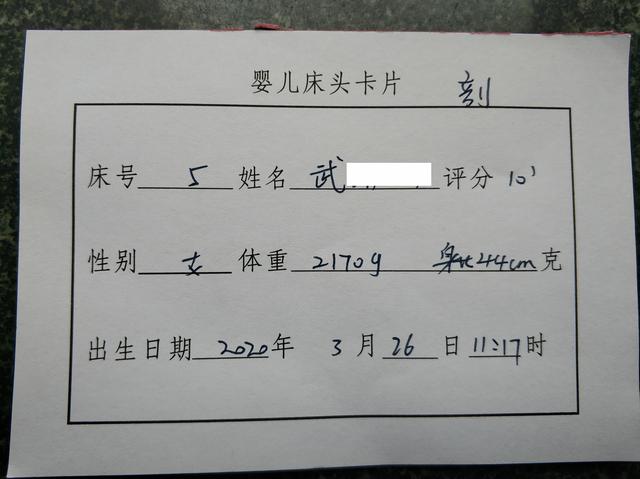 婴儿床头卡片 剖
床号 5 姓名 武 评分 10'
性别 女 体重 2170g 身长44cm 克
出生日期 2020年 3月 26 日 11:17 时